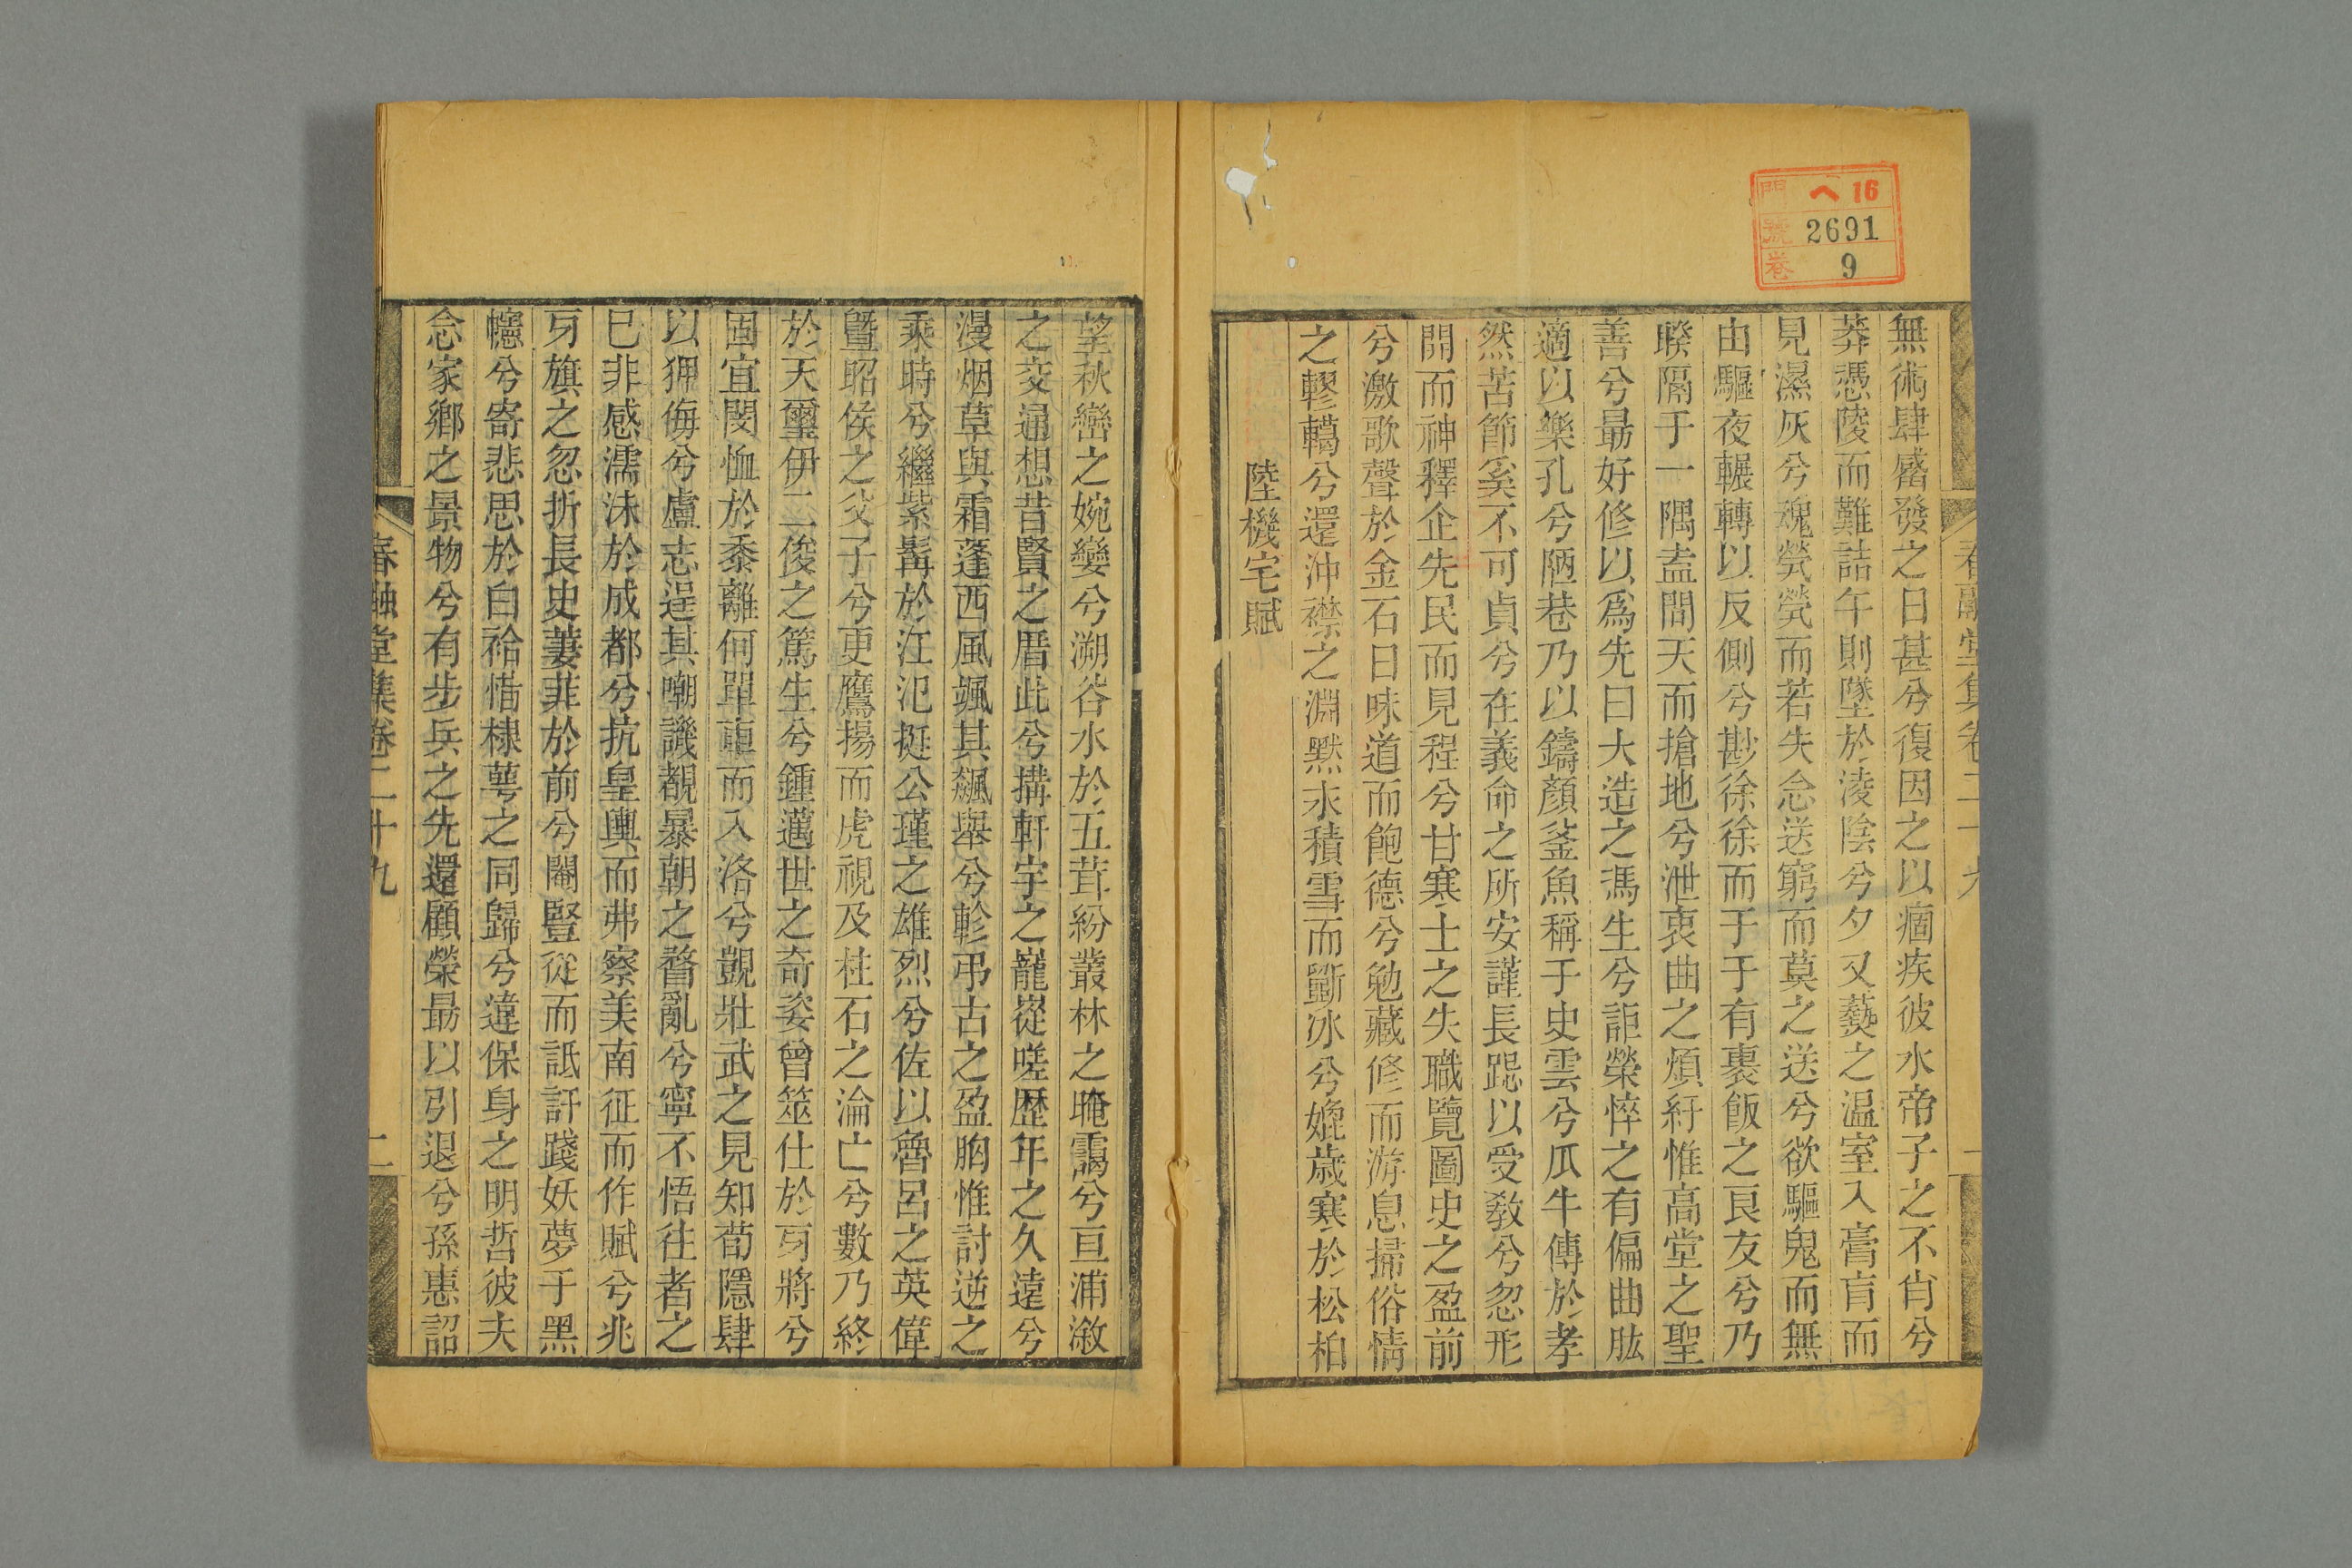 門 へ16
號 2691
卷 9
春融堂集卷二十九
無術肆簪發之日甚兮復因之以痼疾彼水帝子之不肖兮
莽憑陵而難詰午則墜於淩陰兮夕又爇之温室入膏肓而
見濕灰兮魂煢煢而若失念送窮而莫之送兮欲驅鬼而無
由驅夜輾轉以反側兮斟徐徐而于于有裹飯之良友兮乃
睽隔于一隅盍問天而搶地兮泄衷曲之煩紆惟高堂之聖
善兮最好修以爲先曰大造之馮生兮詎榮悴之有偏曲肱
適以樂孔兮陋巷乃以鑄顏釜魚稱于史雲兮瓜牛傳於孝
然苦節奚不可貞兮在義命之所安謹長跽以受敎兮忽形
開而神釋企先民而見程兮甘寒士之失職覽圖史之盈前
兮激歌聲於金石日味道而飽德兮勉藏修而游息掃俗情
之轇轕兮還沖襟之淵默末積雪而斷冰兮媿歲寒於松柏
陸機宅賦
望秋巒之婉孌兮溯谷水於五茸紛叢林之晻靄兮亘浦漵
之交通想昔賢之厝此兮搆軒宇之巃嵸嗟歴年之久遠兮
漫烟草與霜蓬西風颯其飆舉兮軫弔古之盈胸惟討逆之
乘時兮繼紫髯於江汜挺公瑾之雄烈兮佐以魯呂之英偉
暨昭侯之父子兮更鷹揚而虎視及柱石之淪亡兮數乃終
於天璽伊二俊之篤生兮鍾邁世之奇姿曾筮仕於牙將兮
固宜閔恤於黍離何單車而入洛兮覬壯武之見知荀隱肆
以狎侮兮盧志逞其嘲譏覩暴朝之瞀亂兮寧不悟往者之
已非感濡沫於成都兮抗皇輿而弗察美南征而作賦兮兆
牙旗之忽折長史萋菲於前兮閹豎從而詆訐踐妖夢于黑
幰兮寄悲思於白袷惜棣萼之同歸兮違保身之明哲彼夫
念家鄉之景物兮有步兵之先還顧榮最以引退兮孫惠詔
春融堂集卷二十九
二